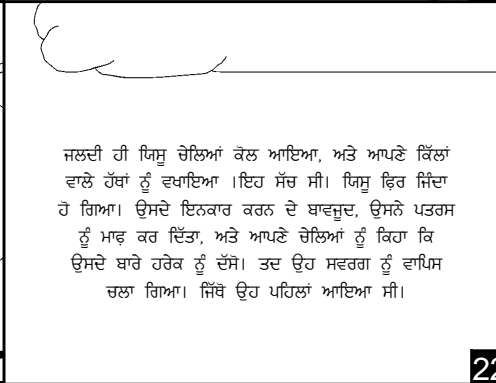 ਜਲਦੀ ਹੀ ਯਿਸੂ ਚੇਲਿਆਂ ਕੋਲ ਆਇਆ, ਅਤੇ ਆਪਣੇ ਕਿੱਲਾਂ
ਵਾਲੇ ਹੱਥਾਂ ਨੂੰ ਵਖਾਇਆ ।ਇਹ ਸੱਚ ਸੀ। ਯਿਸੂ ਫ਼ਿਰ ਜਿੰਦਾ
ਹੋ ਗਿਆ। ਉਸਦੇ ਇਨਕਾਰ ਕਰਨ ਦੇ ਬਾਵਜੂਦ, ਉਸਨੇ ਪਤਰਸ
ਨੂੰ ਮਾਫ਼ ਕਰ ਦਿੱਤਾ, ਅਤੇ ਆਪਣੇ ਚੇਲਿਆਂ ਨੂੰ ਕਿਹਾ ਕਿ
ਉਸਦੇ ਬਾਰੇ ਹਰੇਕ ਨੂੰ ਦੱਸੋ। ਤਦ ਉਹ ਸਵਰਗ ਨੂੰ ਵਾਪਿਸ
ਚਲਾ ਗਿਆ। ਜਿੱਥੋ ਉਹ ਪਹਿਲਾਂ ਆਇਆ ਸੀ।